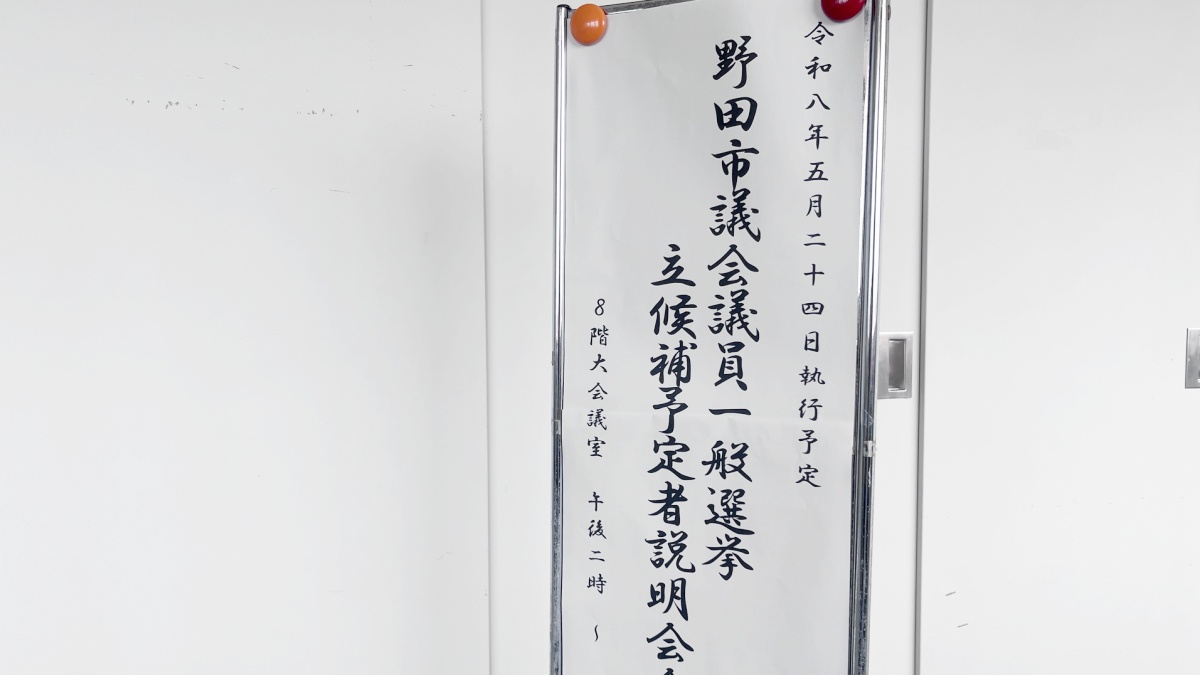 令和八年五月二十四日執行予定
野田市議会議員一般選挙
立候補予定者説明会
8階大会議室 午後二時 ~